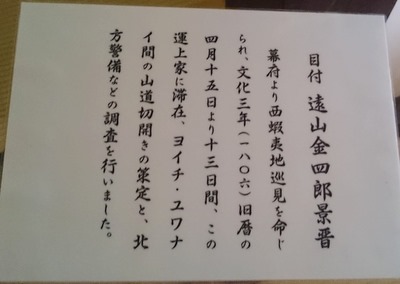 目付 遠山金四郎景晋
幕府より西蝦夷地巡見を命じ
られ、文化三年(一八〇六)旧暦の
四月十五日より十三日間、この
運上家に滞在、ヨイチ・ユワナ
イ間の山道切開きの策定と、北
方警備などの調査を行いました。